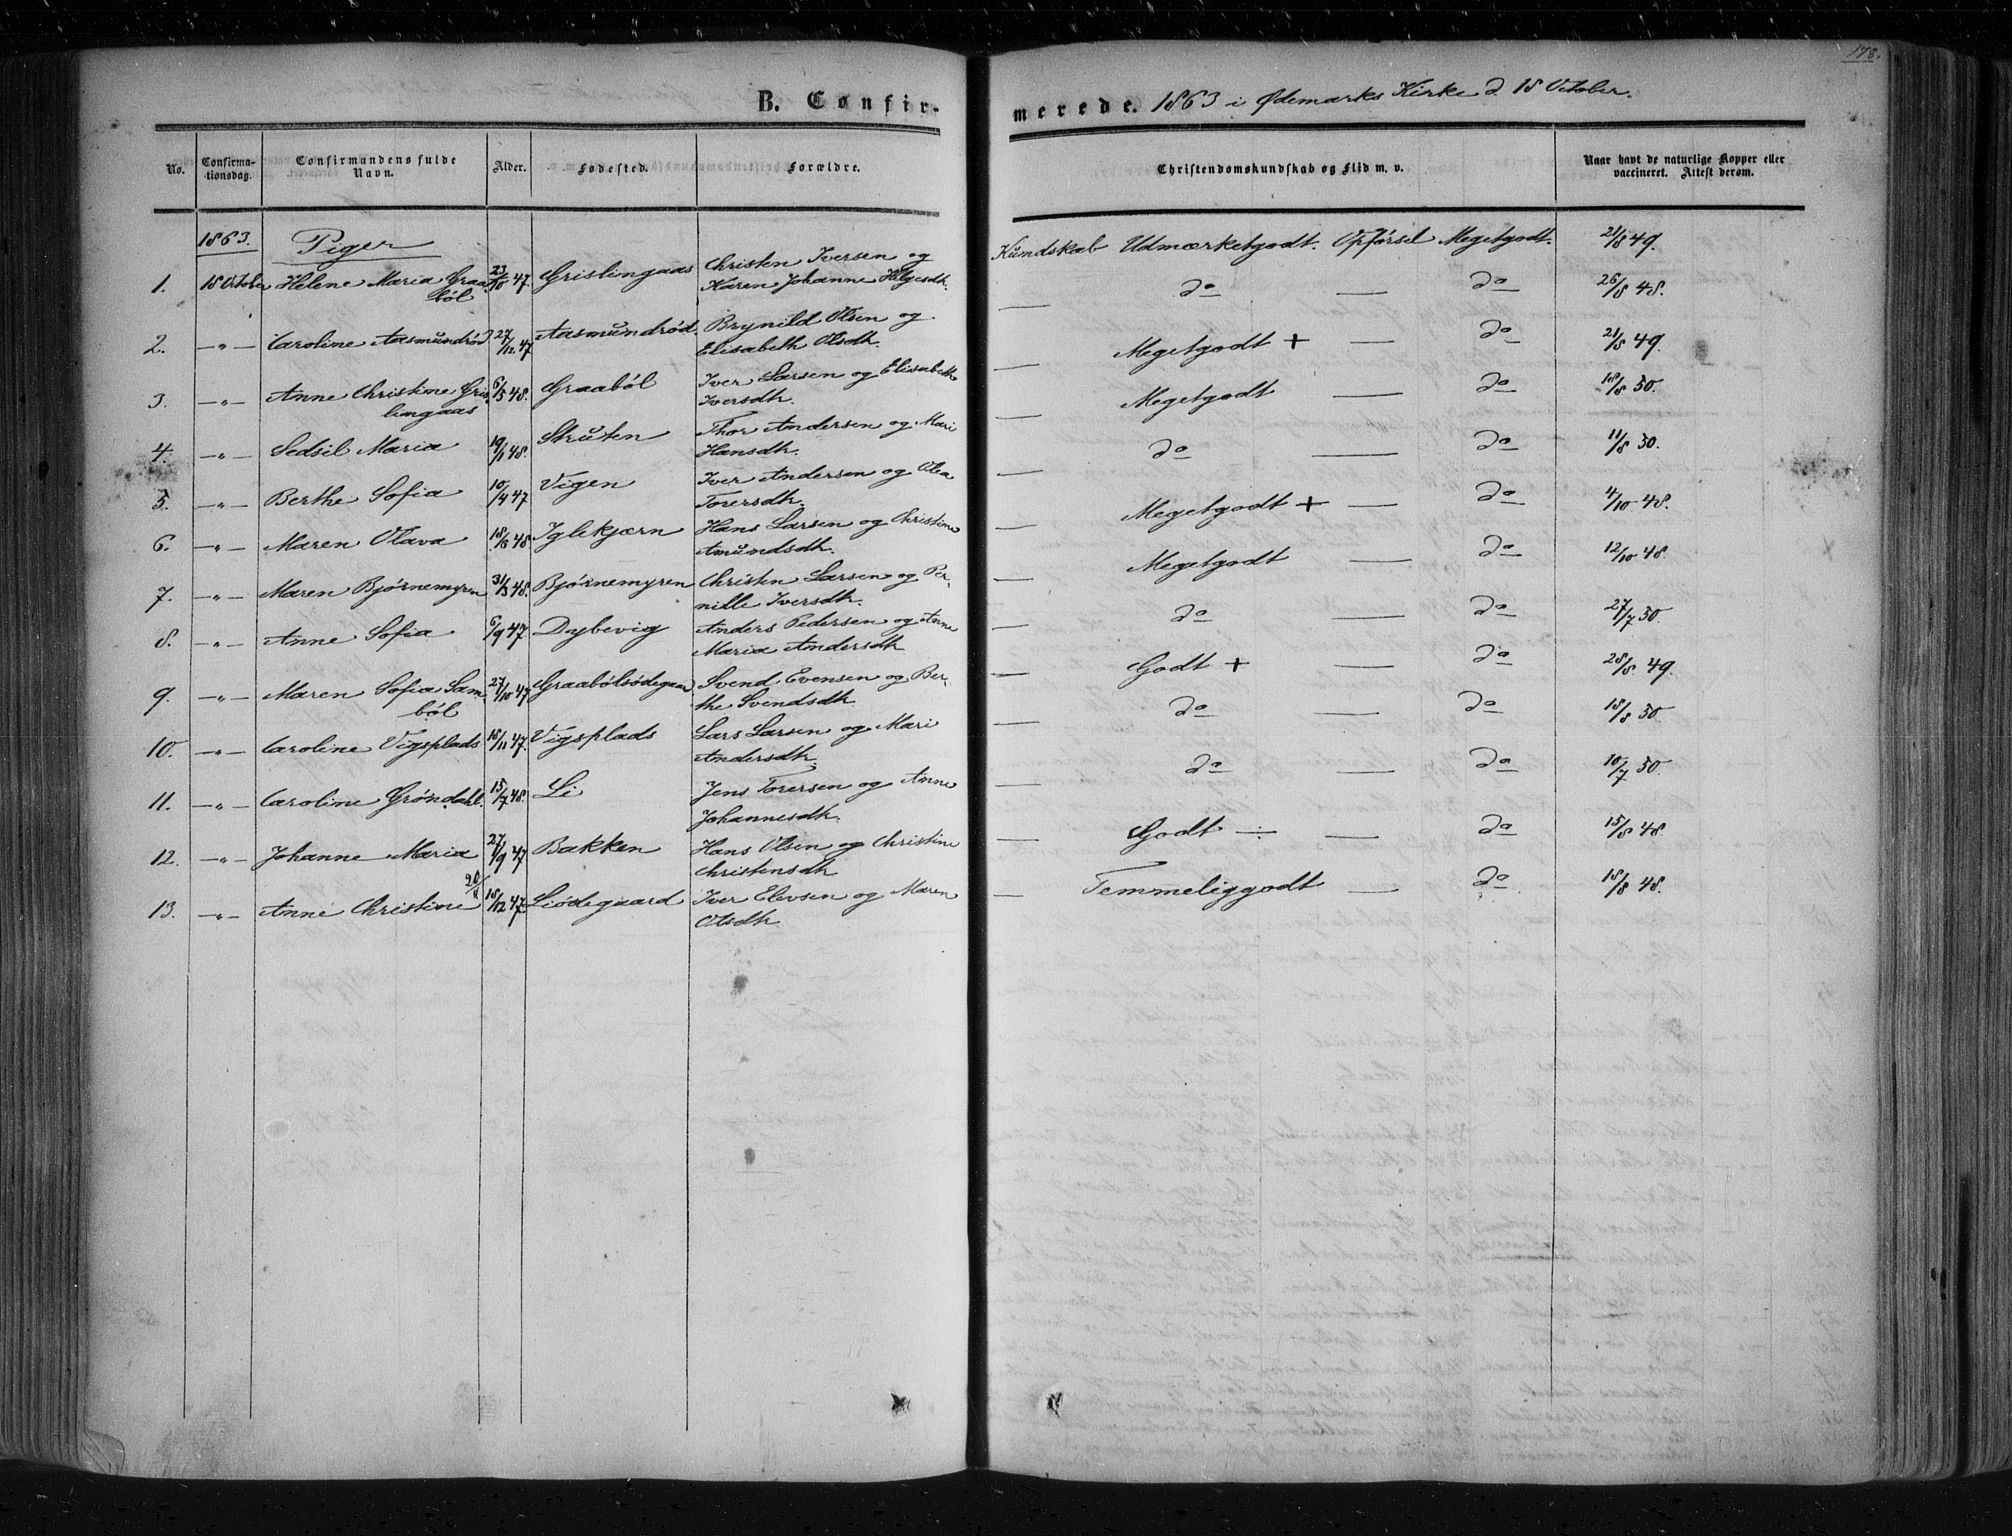 178.
B. Confirmerede. 1863 i Ødemarks Kirke d. 18 October.
No. Confirmationsdag. Confirmandens fulde Navn. Alder. Fødested. Forældre. Christendomskundskab og Flid m. v. Naar havt de naturlige Kopper eller vaccineret. Attest derom.
1863. Piger
Kundskab Udmærketgodt. Opførsel Megetgodt. 21/8 49.
1. 18 October Helene Maria Graabøl 23/10 47. Grislingaas Christen Iversen og Karen Johanne Helgesdtr. — do — do 26/8 48.
2. —"— Caroline Aasmundrød 27/12 47 Aasmundrød. Brynild Olsen og Elisabeth Olsdtr. — Megetgodt + — do 21/8 49.
3. —"— Anne Christine Grislingaas 6/5 48. Graabøl Iver Larsen og Elisabeth Iversdtr. — Megetgodt — do 18/8 50.
4. —"— Sedsil Maria 19/1 48. Struten Thor Andersen og Mari Hansdtr. — do — do 11/8 50.
5. —"— Berthe Sofia 10/4 47 Vigen Iver Andersen og Olea Torersdtr. — Megetgodt + — do 4/10 48.
6. —"— Maren Olava 18/8 48. Iglekjærn Hans Larsen og Christine Amundsdtr. — Megetgodt — do 12/10 48.
7. —"— Maren Bjørnemyren 31/3 48. Bjørnemyren Christen Larsen og Pernille Iversdtr. — do — do 27/7 50.
8. —"— Anne Sofia 6/9 47 Dybevig Anders Pedersen og Anne Maria Andersdtr — Godt + — do 28/8 49.
9. —"— Maren Sofia Sambøl 27/10 47 Graabølsødegaar Svend Evensen og Berthe Svendsdtr — do — do 18/8 50
10. —"— Caroline Vigsplads 18/11 47. Vigsplads Lars Larsen og Mari Andersdtr. — do — do 10/7 50.
11. —"— Caroline Grøndahl. 15/7 48. Li Jens Torersen og Anne Johannesdtr. — Godt ÷ — do 15/8 48.
12. —"— Johanne Maria 27/9 47 Bakken Hans Olsen og Christine Christensdtr — Temmeliggodt — do 18/8 48.
13. —"— Anne Christine 18/12 47. Liødegaard Iver Elevsen og Maren Olsdtr.